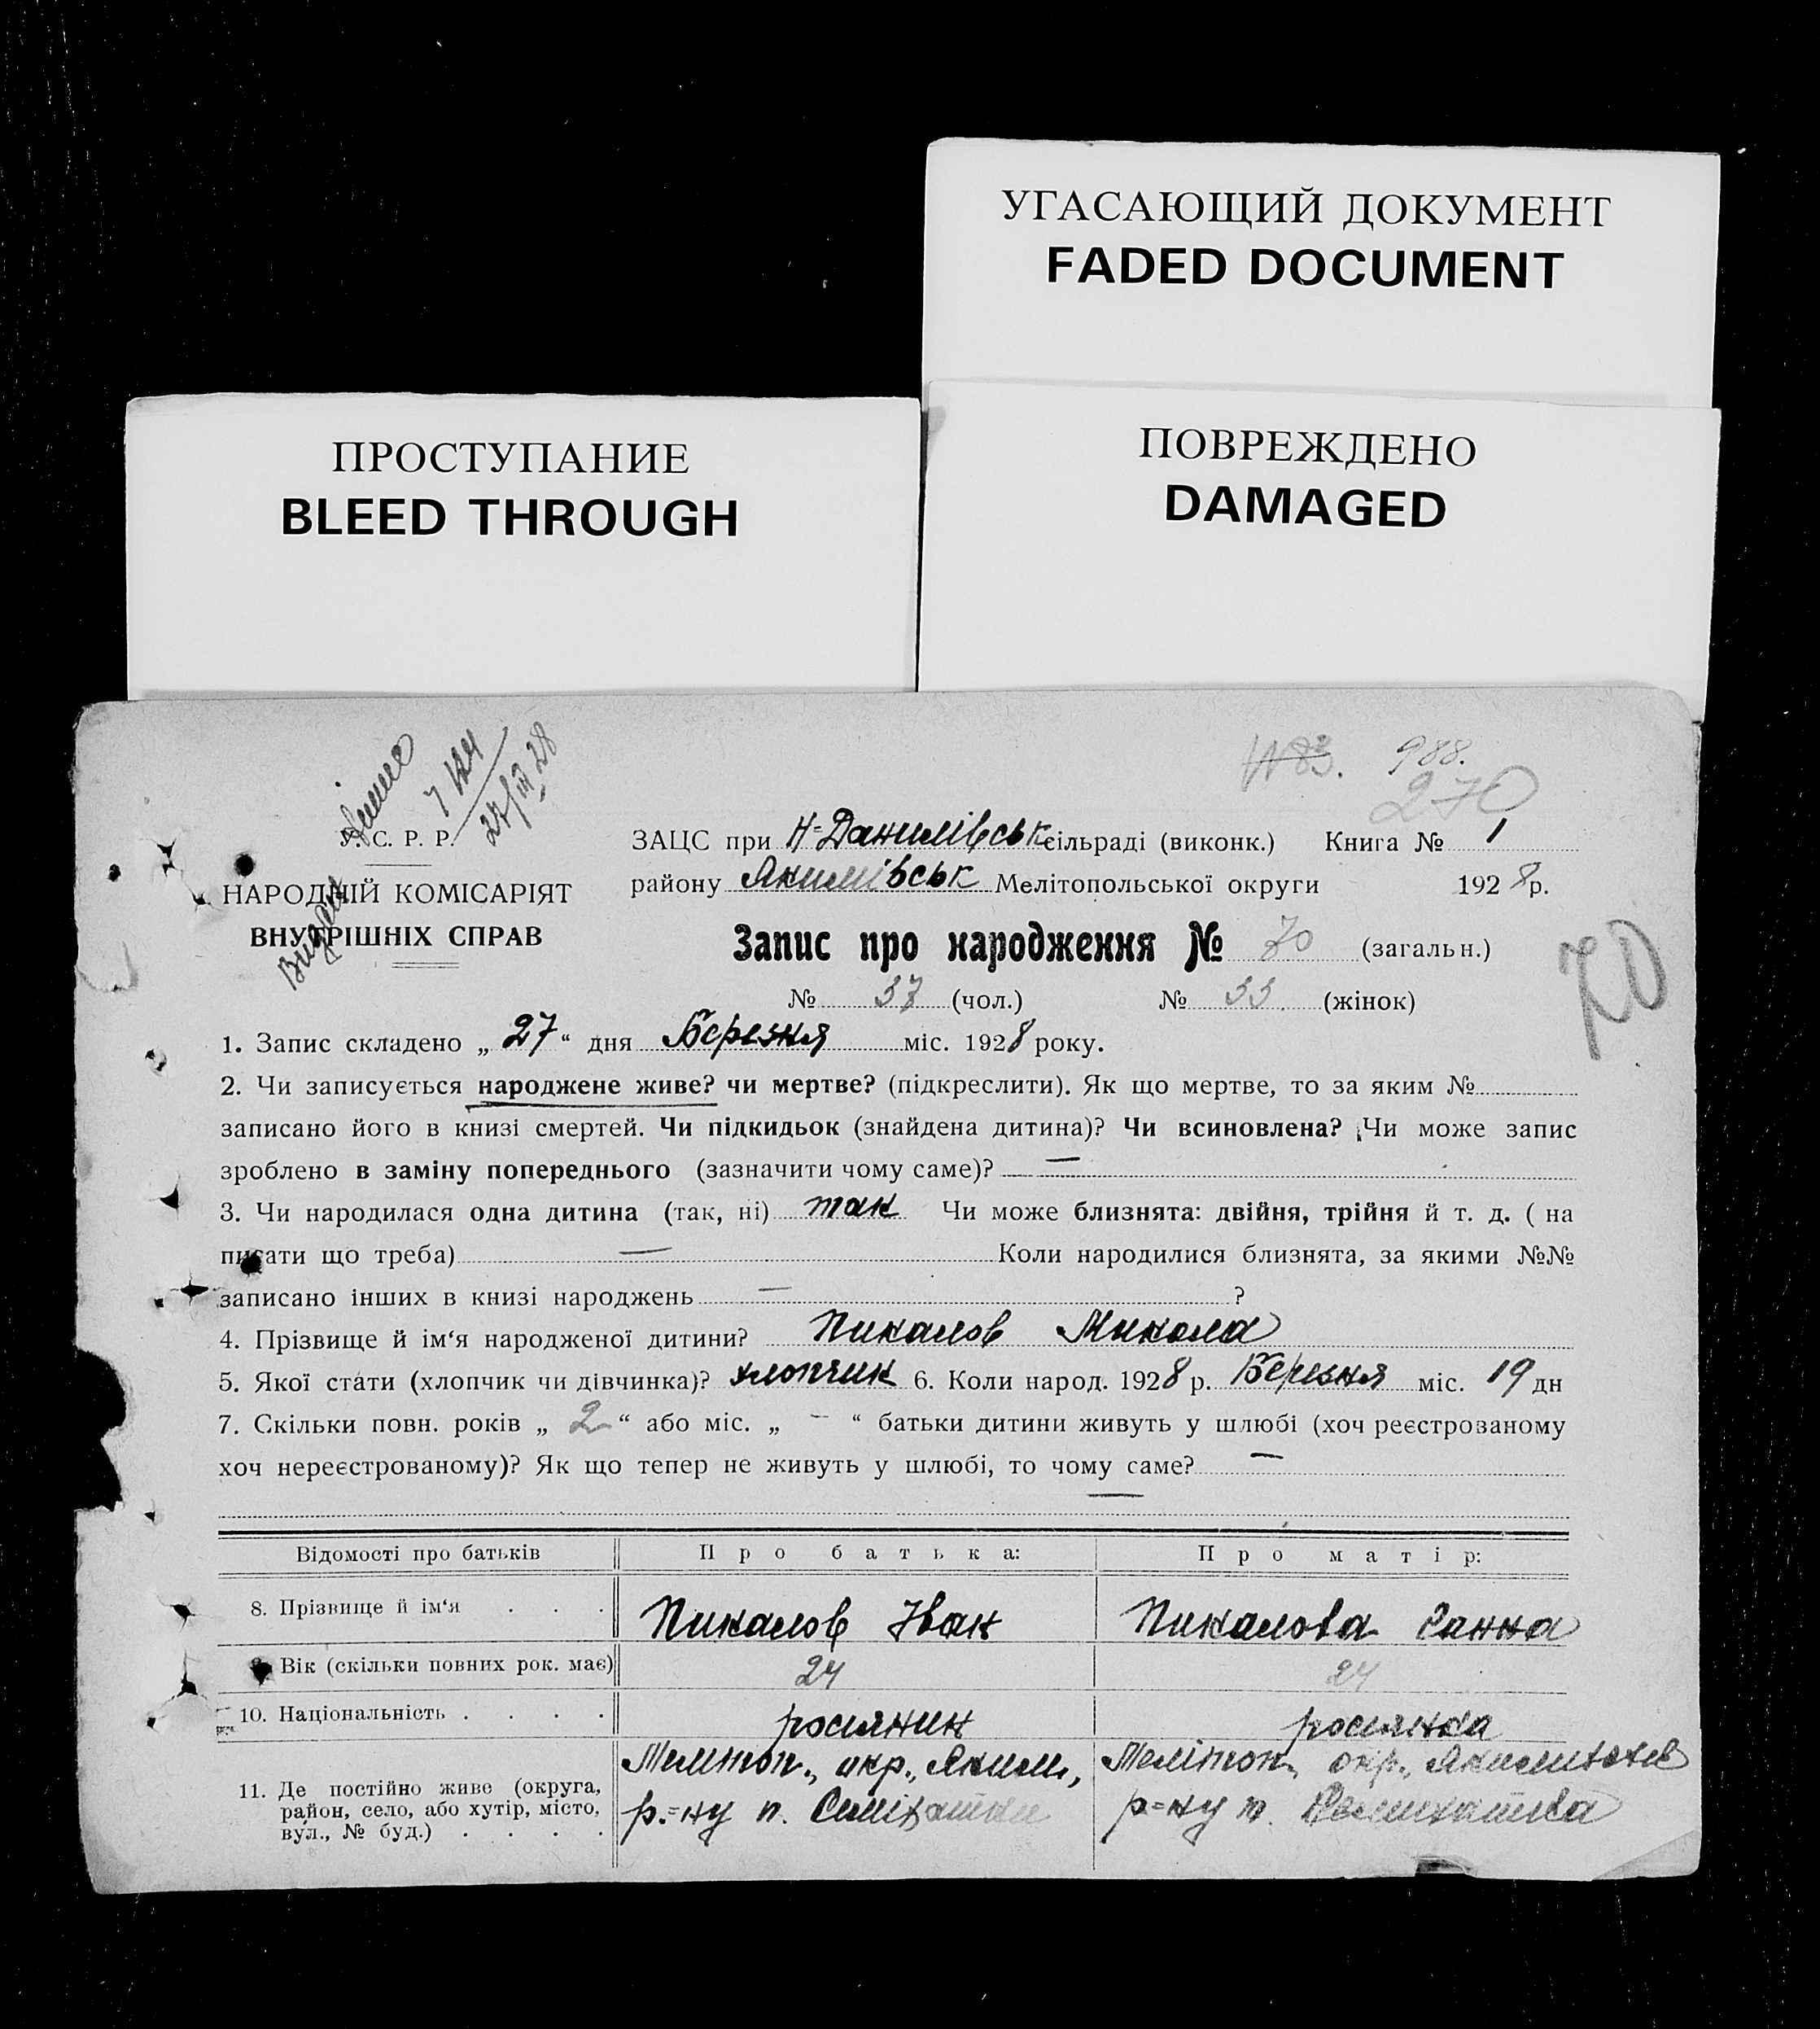 УГАСАЮЩИЙ ДОКУМЕНТ
FADED DOCUMENT
ПРОСТУПАНИЕ
BLEED THROUGH
ПОВРЕЖДЕНО
DAMAGED
988.
270
27/III 28
У. С. Р. Р.
НАРОДНІЙ КОМІСАРІЯТ
ВНУТРІШНІХ СПРАВ
ЗАЦС при Н-Данилівськ сільраді (виконк.) Книга № 1
району Якимівськ Мелітопольської округи 1928 р.
Запис про народження № 70 (загальн.)
70
№ 37 (чол.) № 33 (жінок)
1. Запис складено „27“ дня Березня міс. 1928 року.
2. Чи записується народжене живе? чи мертве? (підкреслити). Як що мертве, то за яким №
записано його в книзі смертей. Чи підкидьок (знайдена дитина)? Чи всиновлена? Чи може запис
зроблено в заміну попереднього (зазначити чому саме)? —
3. Чи народилася одна дитина (так, ні) так Чи може близнята: двійня, трійня й т. д. ( на
писати що треба) — Коли народилися близнята, за якими №№
записано інших в книзі народжень — ?
4. Прізвище й ім‘я народженої дитини? Пикалов Микола
5. Якої стати (хлопчик чи дівчинка)? хлопчик 6. Коли народ. 1928 р. Березня міс. 19 дн
7. Скільки повн. років „2“ або міс. „–“ батьки дитини живуть у шлюбі (хоч реєстрованому
хоч нереєстрованому)? Як що тепер не живуть у шлюбі, то чому саме? —
—
Відомості про батьків Про батька: Про матір:
8. Прізвище й ім‘я . . . Пикалов Іван Пикалова Ганна
9. Вік (скільки повних рок. має) 24 24
10. Національність . . . . росіянин росіянка
11. Де постійно живе (округа,
район, село, або хутір, місто,
вул., № буд.) . . . .
Мелітоп., окр., Яким.,
р=ну п.
Мелітоп., окр.,
р=ну п.